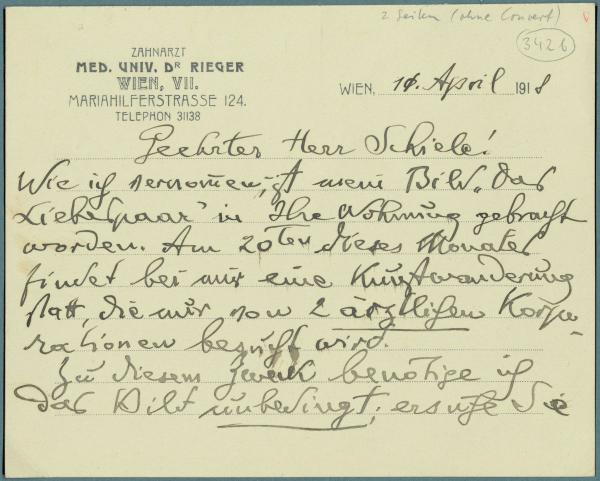 2 Seiten (ohne Couvert)
3426
ZAHNARZT
MED. UNIV. DR RIEGER
WIEN, VII.
MARIAHILFERSTRASSE 124.
TELEPHON 31138
WIEN, April 1918
Geehrter Herr Schiele!
Wie ich vernommen, ist mein Bild „das
Liebespaar" in Ihre Wohnung gebracht
worden. Am 20ten dieses Monates
findet bei mir eine Kunstwanderung
statt, die mir von 2 ärztlichen Korpo-
rationen besucht wird.
Zu diesem Zweck benötige ich
das Bild unbedingt; ersuche Sie